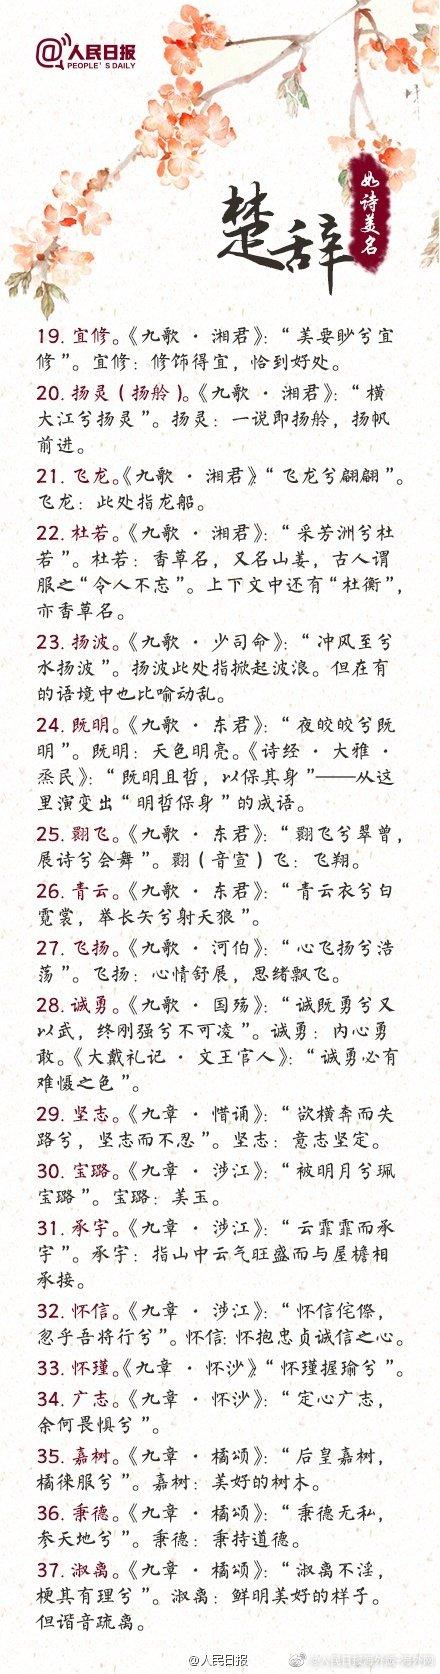 @人民日报
PEOPLE'S DAILY
楚辞
如诗美名
19. 宜修。《九歌·湘君》：“美要眇兮宜
修”。宜修：修饰得宜，恰到好处。
20. 扬灵（扬舲）。《九歌·湘君》：“横
大江兮扬灵”。扬灵：一说即扬舲，扬帆
前进。
21. 飞龙。《九歌·湘君》“飞龙兮翩翩”。
飞龙：此处指龙船。
22. 杜若。《九歌·湘君》：“采芳洲兮杜
若”。杜若：香草名，又名山姜，古人谓
服之“令人不忘”。上下文中还有“杜衡”，
亦香草名。
23. 扬波。《九歌·少司命》：“冲风至兮
水扬波”。扬波此处指掀起波浪。但在有
的语境中也比喻动乱。
24. 既明。《九歌·东君》：“夜皎皎兮既
明”。既明：天色明亮。《诗经·大雅·
烝民》：“既明且哲，以保其身”——从这
里演变出“明哲保身”的成语。
25. 翾飞。《九歌·东君》：“翾飞兮翠曾，
展诗兮会舞”。翾（音宣）飞：飞翔。
26. 青云。《九歌·东君》：“青云衣兮白
霓裳，举长矢兮射天狼”。
27. 飞扬。《九歌·河伯》：“心飞扬兮浩
荡”。飞扬：心情舒展，思绪飘飞。
28. 诚勇。《九歌·国殇》：“诚既勇兮又
以武，终刚强兮不可凌”。诚勇：内心勇
敢。《大戴礼记·文王官人》：“诚勇必有
难慑之色”。
29. 坚志。《九章·惜诵》：“欲横奔而失
路兮，坚志而不忍”。坚志：意志坚定。
30. 宝璐。《九章·涉江》：“被明月兮珮
宝璐”。宝璐：美玉。
31. 承宇。《九章·涉江》：“云霏霏而承
宇”。承宇：指山中云气旺盛而与屋檐相
承接。
32. 怀信。《九章·涉江》：“怀信侘傺，
忽乎吾将行兮”。怀信：怀抱忠贞诚信之心。
33. 怀瑾。《九章·怀沙》“怀瑾握瑜兮”。
34. 广志。《九章·怀沙》：“定心广志，
余何畏惧兮”。
35. 嘉树。《九章·橘颂》：“后皇嘉树，
橘徕服兮”。嘉树：美好的树木。
36. 秉德。《九章·橘颂》：“秉德无私，
参天地兮”。秉德：秉持道德。
37. 淑离。《九章·橘颂》：“淑离不淫，
梗其有理兮”。淑离：鲜明美好的样子。
但谐音疏离。
@人民日报
@人民日报海外版-海外网